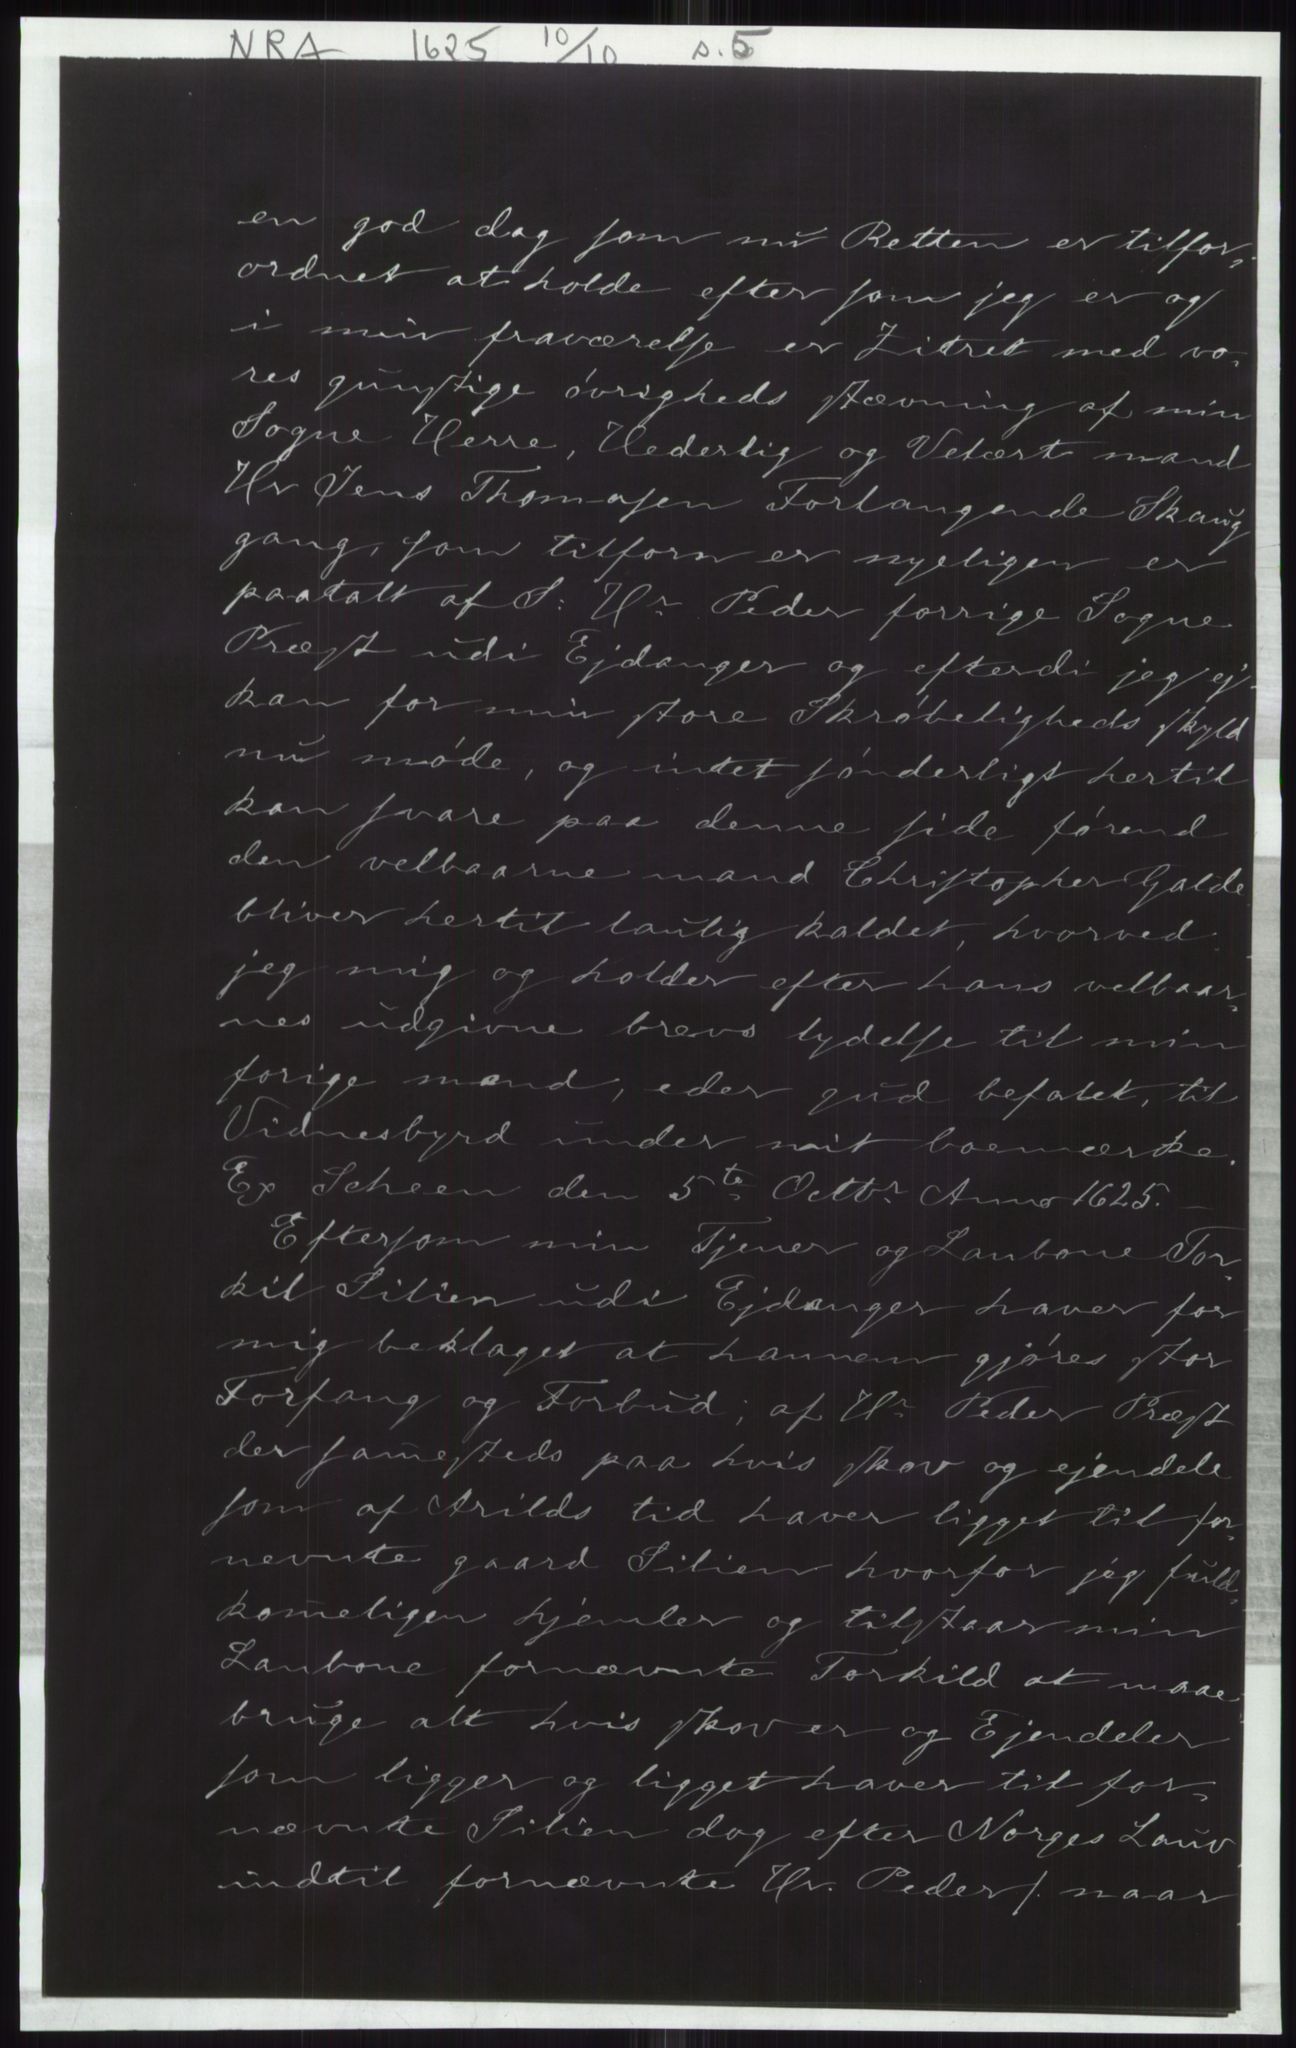 NRA 1625 10/10 s. 5
en god dag som nu Retten er tilfor-
ordnet at holde efter som jeg er og
i min fraværelse er Zitret med vo-
res gunstige øvrigheds stævning af min
Sogne Herre, Hederlig og Velært mand
Hr Jens Thomasen Forlangende Skaug
gang, som tilforn er nyeligen er
paatalt af S: Hr Peder forrige Sogne
Præst udi Ejdanger og efterdi jeg ej
kan for min store Skrøbeligheds skyld
nu møde, og intet sønderligt hertil
kan svare paa denne side førend
den velbaarne mand Christopher Galde
bliver hertil laulig kaldet, hvorved
jeg mig og holder efter hans velbaar-
nes udgivne brevs lydelse til min
forige mand, eder gud befalet, til
Vidnesbyrd under mit boemærke.
Ex Scheen den 5te Octbr Anno 1625. —
Eftersom min Tjener og Lanbone Tor-
kil Silien udi Ejdanger haver for
mig beklaget at hannem gjøres stor
Forfang og Forbud; af Hr Peder Præst
der sam̄esteds paa hvis skov og ejendele
som af Arilds tid haver ligget til for-
nevnte gaard Silien hvorfor jeg fuld-
kom̄eligen hjemler og tilstaar min
Lanbone fornævnte Torkild at maae
bruge alt hvis skov er og Ejendeler
som ligger og ligget haver til for-
nævnte Silien dog efter Norges Lauv
indtil fornævnte Hr. Peder /. naar